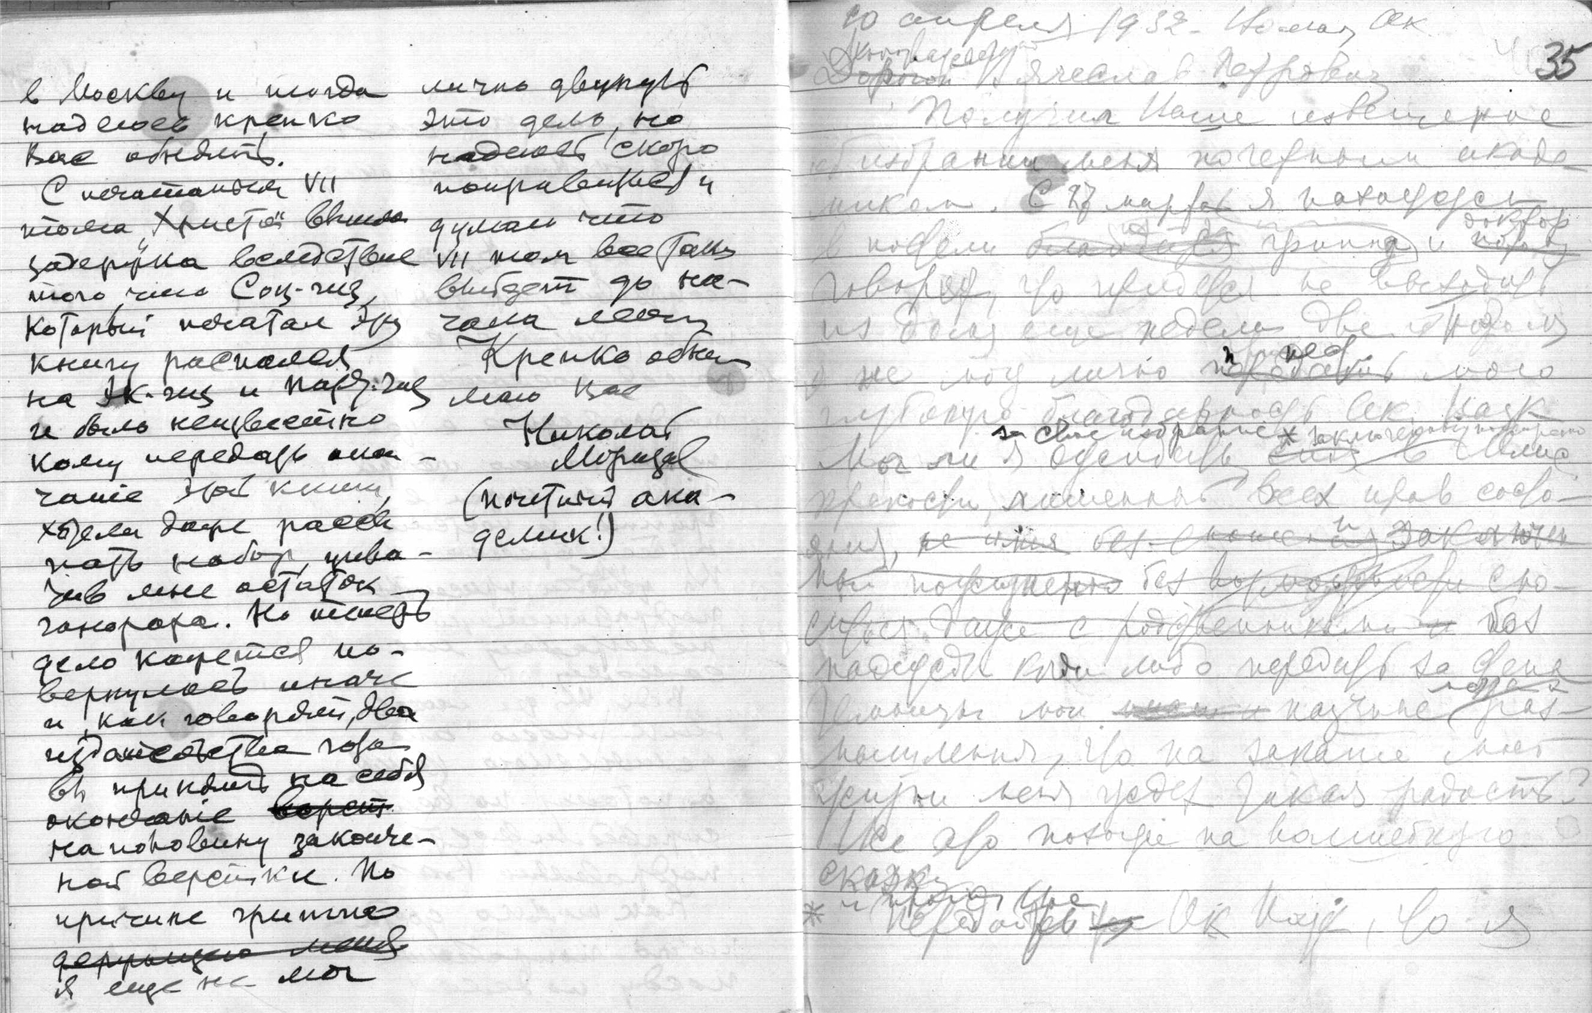 в Москву и тогда
надеюсь крепко
Вас обнять.
С печатаньем VII
тома „Христа“ вышла
задержка вследствие
того, что Соц-гиз,
который печатал эту
книгу распался
на Эк-гиз и Парт.-гиз
и было неизвестно
кому передать окон-
чание этой книги,
хотели даже рассы
пать набор, упла-
тив мне остаток
гонорара. Но теперь
дело кажется по-
вернулось иначе
и, как говорят, два
издательства гото
вы принять на себя
окончание верст
наполовину закончен-
ной верстки. По
причине гриппа
держащего меня
я еще не мог
лично двинуть
это дело, но
надеюсь скоро
поправиться и
думаю что
VII том все таки
выйдет до на-
чала
Крепко обни
маю Вас
Николай
Морозов
(почетный ака-
демик!)
35
10 апреля 1932. Ак
Многоуважаемый
Дорогой Вячеслав Петрович
Получил Ваше извещение
об избрании меня почетным акаде-
миком. С 27 марта я нахожусь
в постели гриппа и доктор
говорят, что придется не выходить
из дома еще недели две и потому
я не могу лично перед мою
глубокую благодарность Ак. Наук
за свое избрание * заключенный пожизненно
Мог ли я ожидать, сидя в Шлис
крепости, лишенный всех прав состо-
яния, не имея без заключен
ный пожизненно без возможности сно-
ситься даже с родственниками и без
надежды когда либо передать за стена
темницы мои научные раз-
мышления, что на закате моей
жизни меня ждет такая радость?
Все это похоже на волшебную
сказку
и прошу Вас
* Передайте Ак Наук, что я